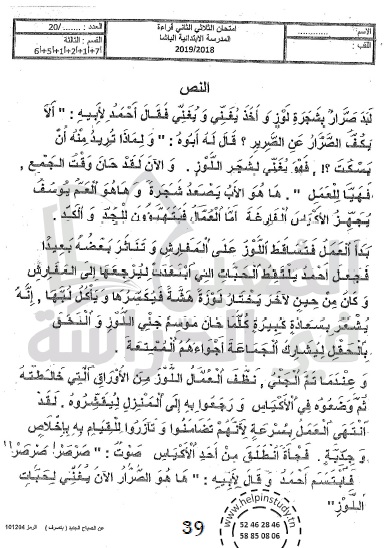 الاسم:
اللقب:
امتحان الثلاثي الثاني قراءة
المدرسة الابتدائية الباشا
2019/2018
العدد: 20/
القسم: الثالثة
6أ+5أ+1أ+2أ+1أ+7أ
النص
لَبَدَ صَرَّارٌ بِشَجَرَةِ لَوْزٍ وَ أَخَذَ يُغَنِّي وَ يُغَنِّي فَقَالَ أَحْمَدُ لِأَبِيهِ: " أَلاَ
يَكُفُّ الصَّرَّارُ عَنِ الصَّرِيرِ ؟ قَالَ لَهُ أَبُوهُ: " وَ لِمَاذَا تُرِيدُ مِنْهُ أَنْ
يَسْكُتَ ؟!, فَهُوَ يُغَنِّي لِشَجَرِ اللَّوْزِ. وَ الآنَ لَقَدْ حَانَ وَقْتُ الجَمْعِ,
فَهَيَّا لِلْعَمَلِ ". هَا هُوَ الأَبُ يَصْعَدُ شَجَرَةً وَ هَاهُوَ العَمُّ يُوسُفُ
يُجَهِّزُ الأَكْيَاسَ الفَارِغَةَ أَمَّا العُمَّالُ فَيَتَهَيَّؤُونَ لِلْجِدِّ وَ الكَدِّ.
بَدَأَ العَمَلُ فَتَسَاقَطَ اللَّوْزُ عَلَى المَفَارِشِ وَ تَنَاثَرَ بَعْضُهُ بَعِيدًا
فَجَعَلَ أَحْمَدُ يَلْتَقِطُ الحَبَّاتِ التي ابْتَعَدَتْ لِيُرْجِعَهَا إِلَى المَفَارِشِ
وَ كَانَ مِنْ حِينٍ لآخَرَ يَخْتَارُ لَوْزَةً هَشَّةً فَيُكَسِّرُهَا وَ يَأْكُلُ لُبَّهَا, إِنَّهُ
يَشْعُرُ بِسَعَادَةٍ كَبِيرَةٍ كُلَّمَا حَانَ مَوْسِمُ جَنْيِ اللَّوْزِ وَ الْتَحَقَ
بِالحَقْلِ لِيُشَارِكَ الجَمَاعَةَ أَجْوَاءَهُمُ المُمْتِعَةَ.
وَ عِنْدَمَا تَمَّ الجَنْيُ, نَظَّفَ العُمَّالُ اللَّوْزَ مِنَ الأَوْرَاقِ الَّتِي خَالَطَتْهُ
ثُمَّ وَضَعُوهُ فِي الأَكْيَاسِ وَ رَجَعُوا بِهِ إِلَى المَنْزِلِ لِيُقَشِّرُوهُ. لَقَدْ
انْتَهَى العَمَلُ بِسُرْعَةٍ لأَنَّهُمْ تَضَامَنُوا وَ تَآزَرُوا لِلْقِيَامِ بِهِ بِإِخْلاَصٍ
وَ جِدِّيَّةٍ. فَجْأَةً انْطَلَقَ مِنْ أَحَدِ الأَكْيَاسِ صَوْتٌ: " صَرْصَرْ! صَرْصَرْ! "
فَابْتَسَمَ أَحْمَدُ وَ قَالَ لِأَبِيهِ: " هَا هُوَ الصَّرَّارُ الآنَ يُغَنِّي لِحَبَّاتِ
اللَّوْزِ"
39
www.helpinstudy.tn
52 46 28 46
58 85 08 06
الرمز 101204